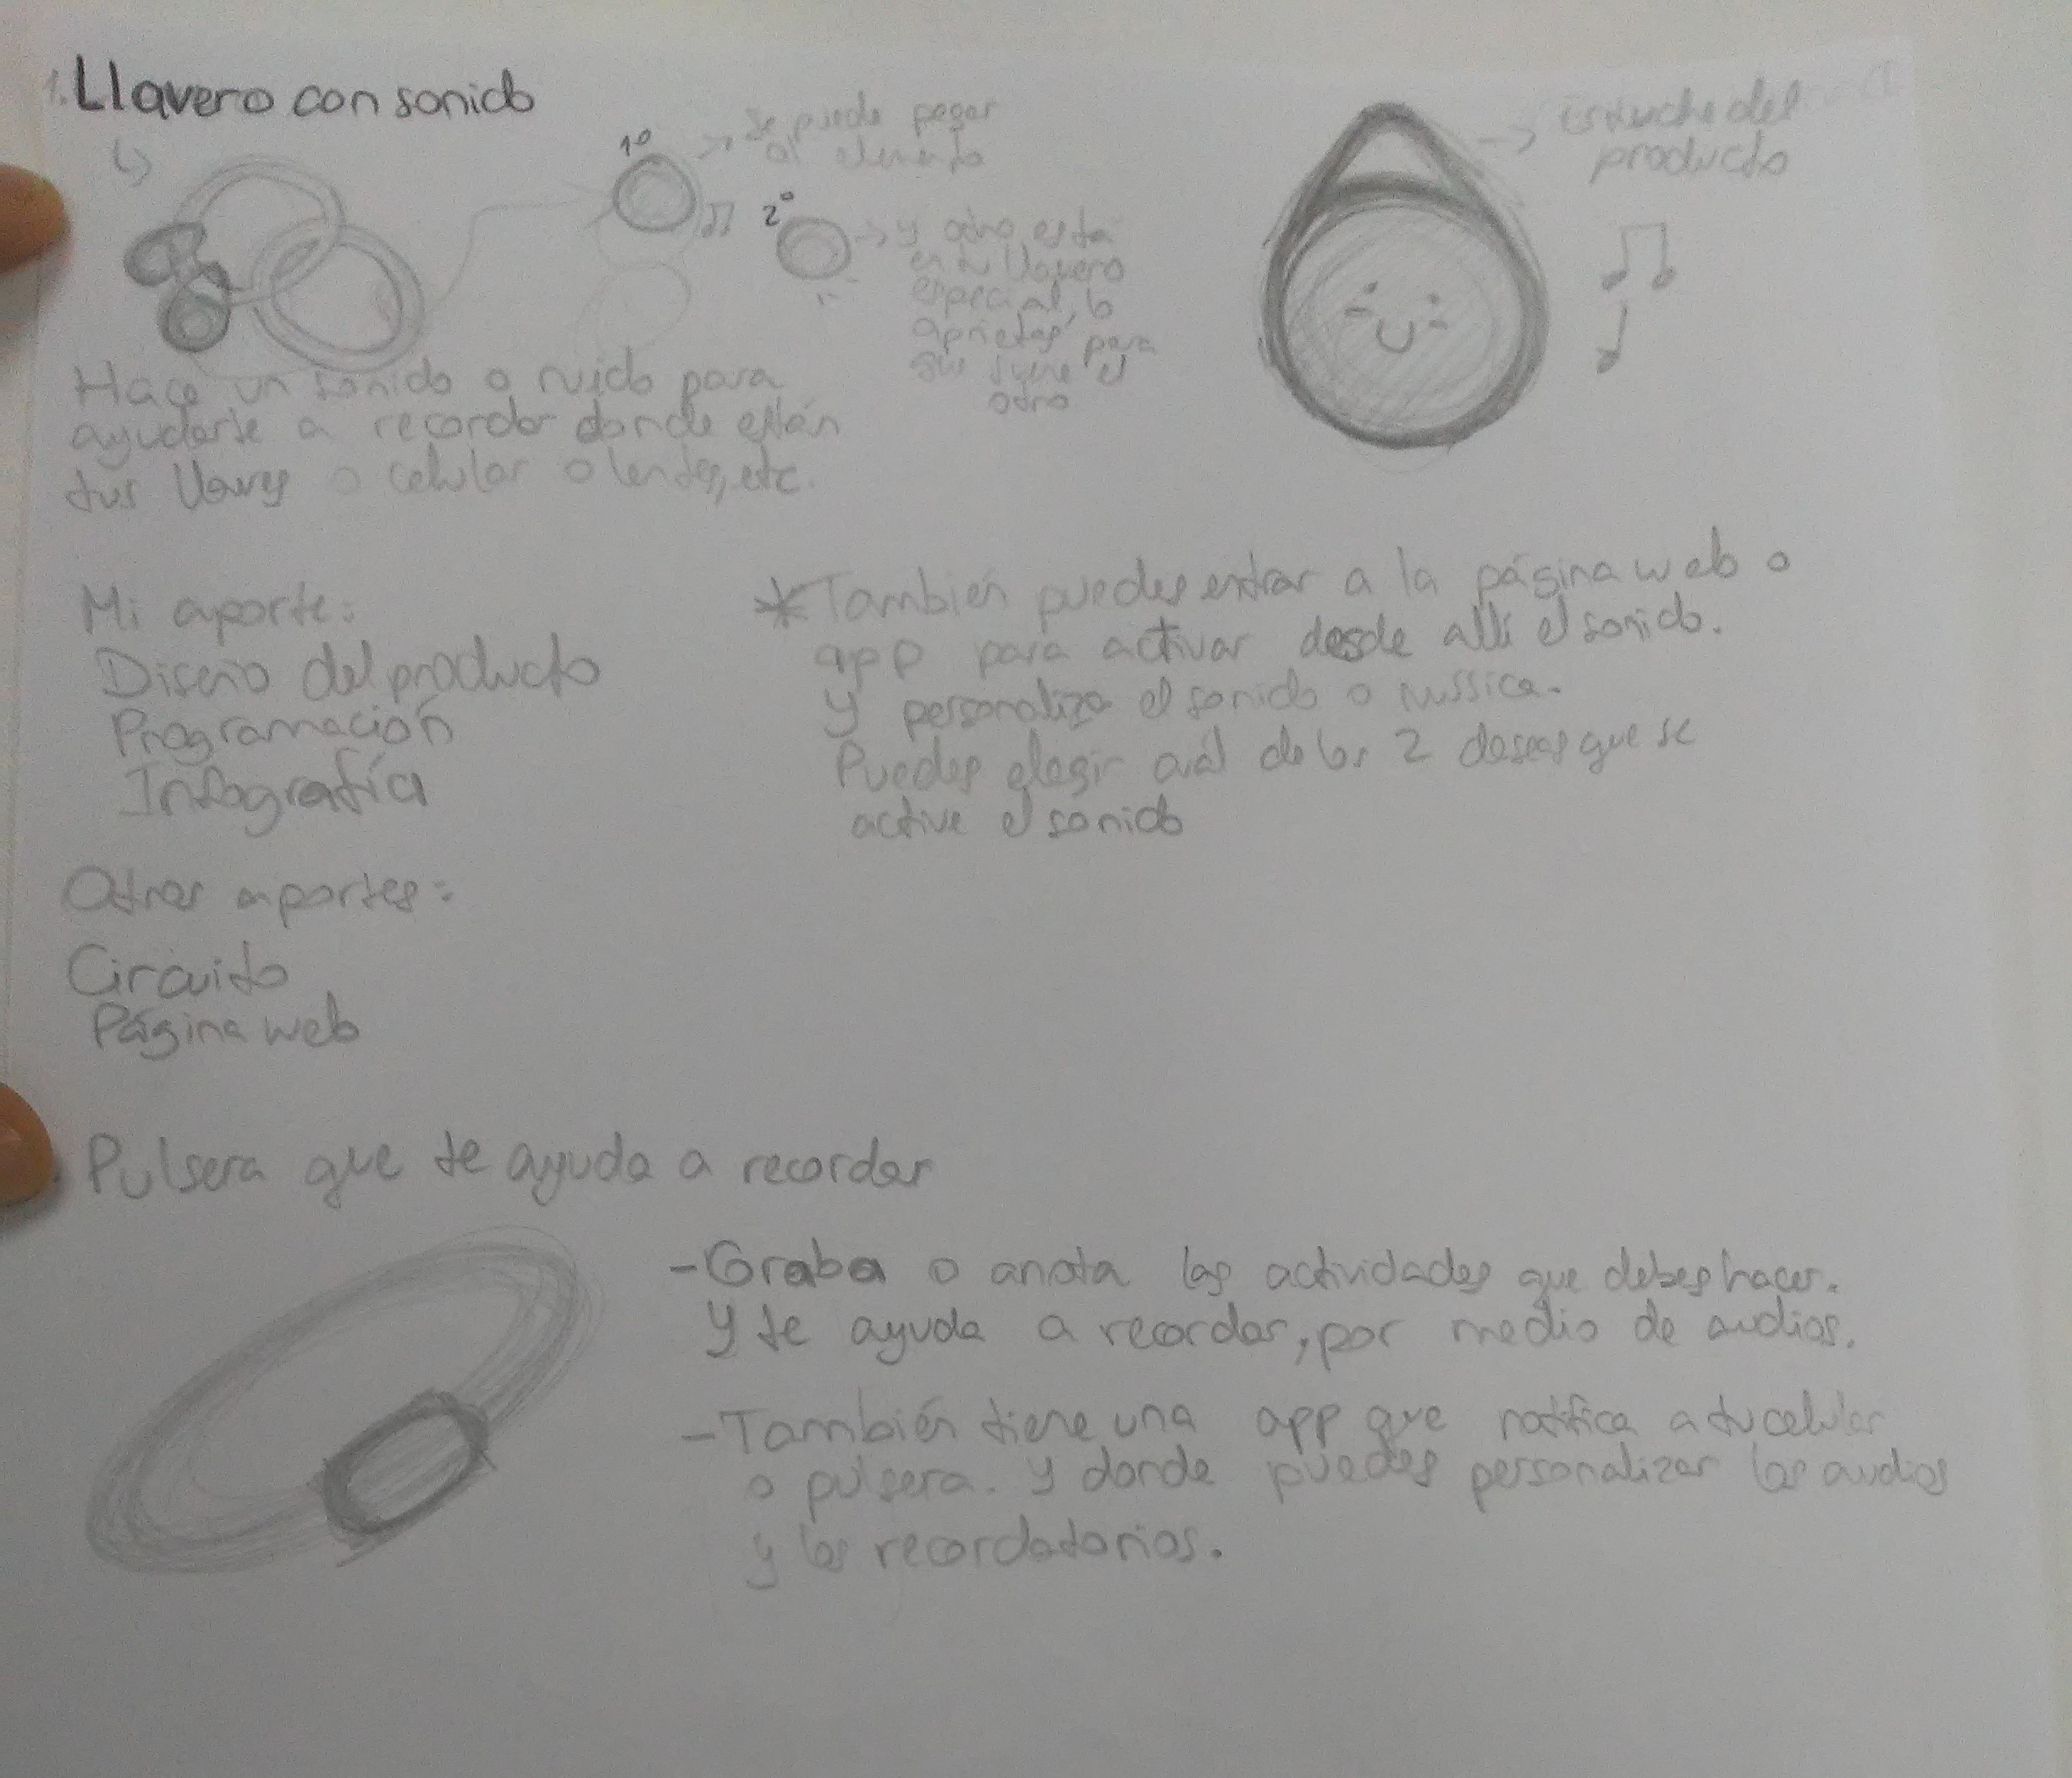 1. Llavero con sonido
1°
se puede pegar
al elemento
2°
y otro está
en tu llavero
especial, lo
aprietas para
que suene el
otro
Estuche del
producto
Hace un sonido o ruido para
ayudarte a recordar donde están
tus llaves o celular o lentes, etc.
Mi aporte:
Diseño del producto
Programación
Infografía
*También puedes entrar a la página web o
app para activar desde allí el sonido.
y personaliza el sonido o mussica.
Puedes elegir cuál de los 2 deseas que se
active el sonido
Otros aportes:
Circuito
Página web
Pulsera que te ayuda a recordar
-Graba o anota las actividades que debes hacer.
y te ayuda a recordar, por medio de audios.
-También tiene una app que notifica a tu celular
o pulsera. y donde puedes personalizar los audios
y los recordatorios.